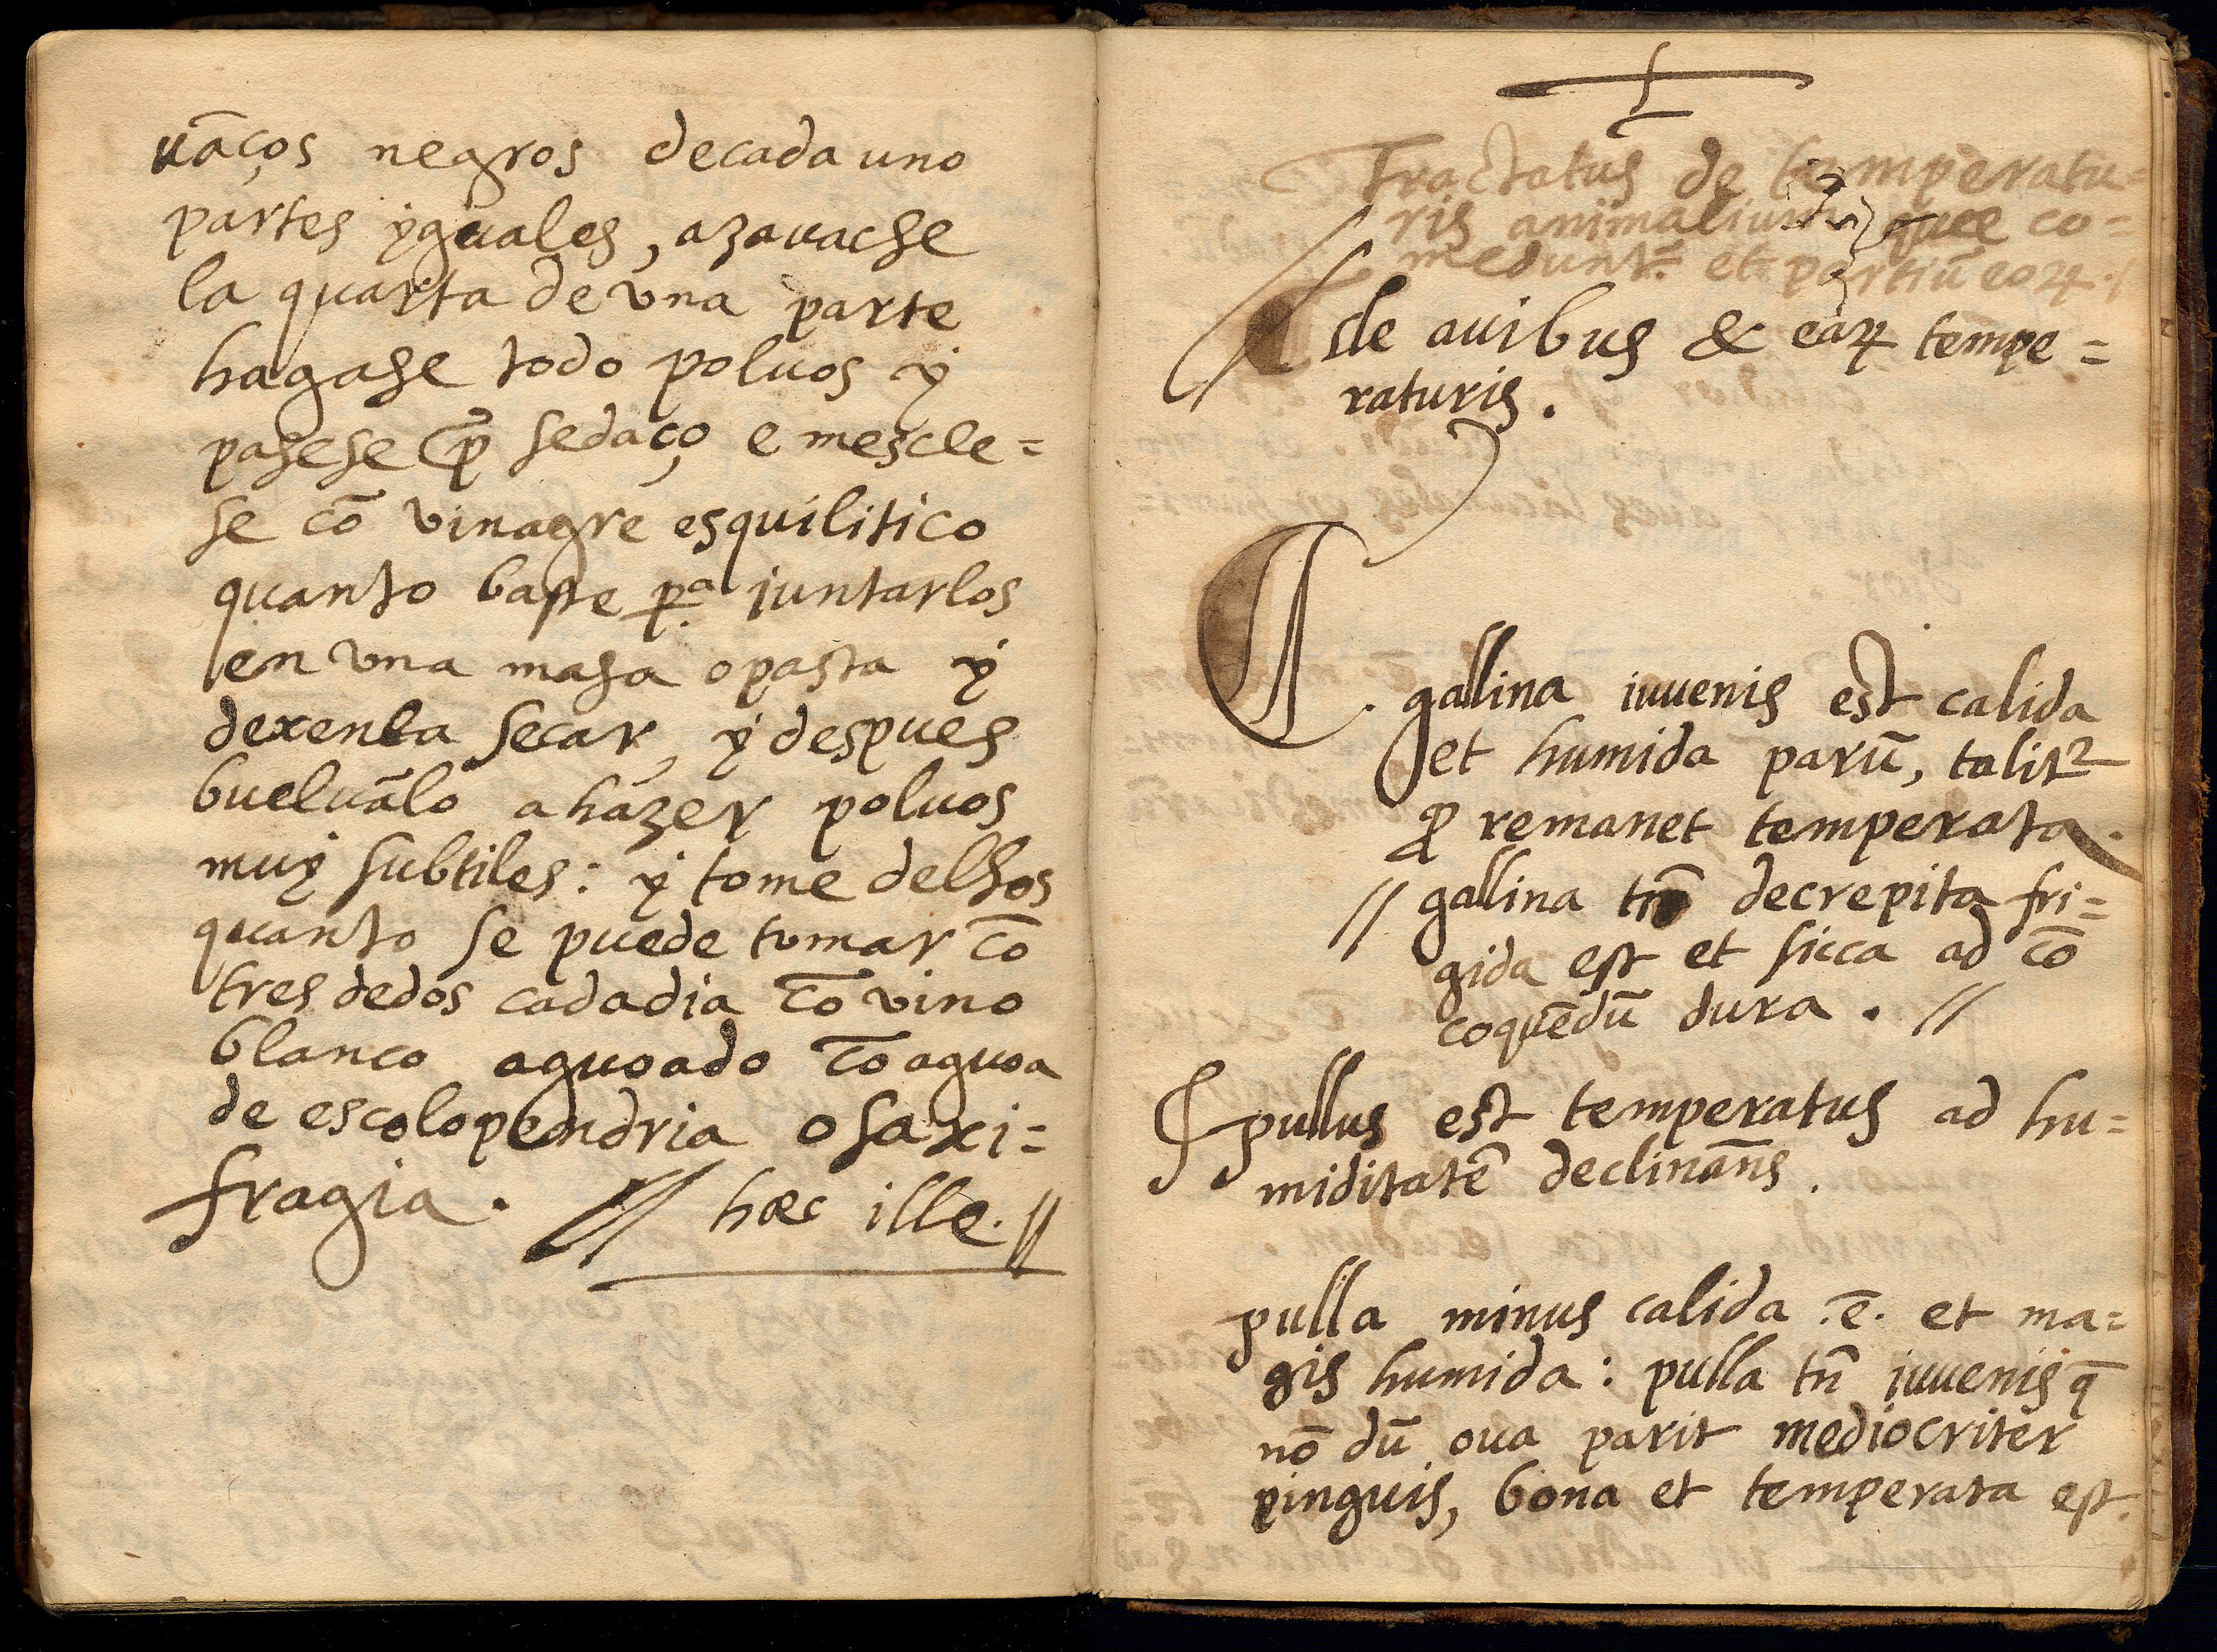 uãços negros decada uno
partes yguales, azauache
la quarta de vna parte
hagase todo poluos y
pasese p̃ sedaço e mescle=
se cõ vinagre esquilitico
quanto baste pª juntarlos
en vna masa o pasta y
dexenla secar, y despues
buelvãlo a hazer poluos
muy subtiles: y tome delhos
quanto se puede tomar cõ
tres dedos cadadia cõ vino
blanco aguoado cõ aguoa
de escolopendria o saxi=
fragia. // hæc ille. //
Tractatus de temperatu=
ris animalium quæ co=
medunt.ʳ et partiũ eoꝝ.
de auibus & eaꝝ tempe=
raturis.
gallina iuuenis est calida
et humida parũ, talitʳ
ꝙ remanet temperata.
// gallina tñ decrepita fri=
gida est et sicca ad cõ
coquẽdũ dura. //
pullus est temperatus ad hu=
miditatẽ declinãns.
pulla minus calida .ē. et ma=
gis humida: pulla tñ iuuenis q̃
nõ dũ oua parit mediocriter
pinguis, bona et temperata est.